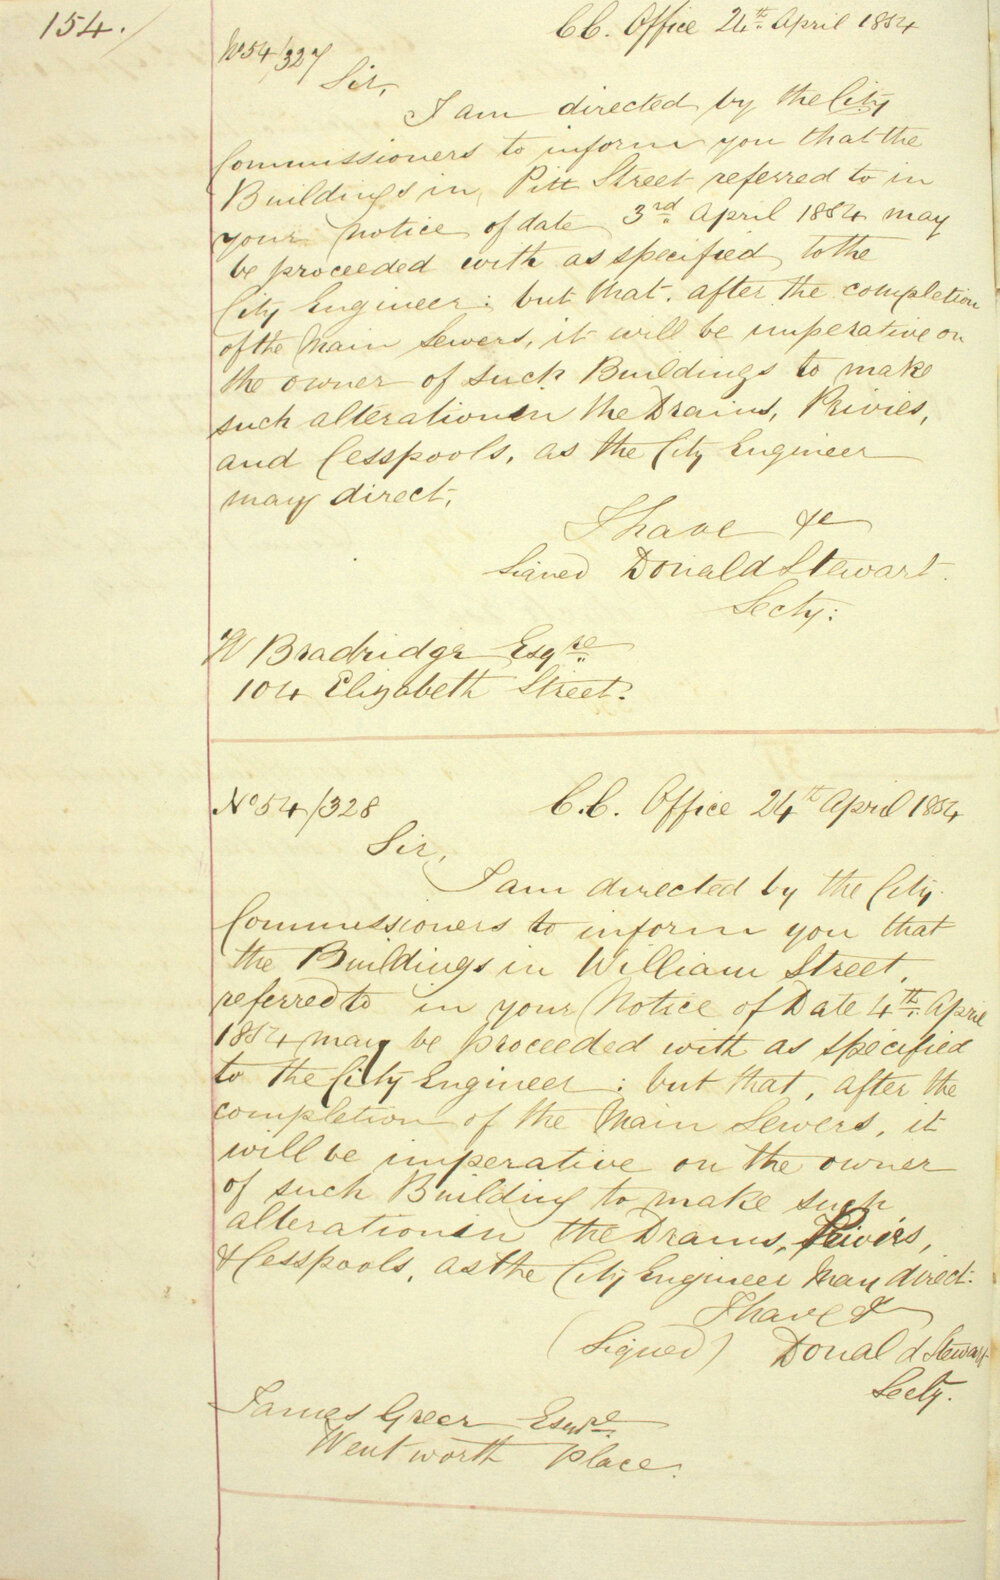 154.
No 54/327
C.C. Office 24th April 1854
Sir,
I am directed by the City
Commissioners to inform you that the
Buildings in Pitt Street referred to in
your notice of date 3rd April 1854 may
be proceeded with as specified to the
City Engineer; but that, after the completion
of the Main Sewers, it will be imperative on
the owner of such Buildings to make
such alteration in the Drains, Privies,
and Cesspools, as the City Engineer
may direct,
I have &c
Signed Donald Stewart.
Secty:
W Bradridge Esqre
104 Elizabeth Street.
No 54/328
C.C. Office 24th April 1854
Sir,
I am directed by the City
Commissioners to inform you that
the Buildings in William Street,
referred to in your Notice of Date 4th April
1854 may be proceeded with as specified
to the City Engineer; but that, after the
completion of the Main Sewers, it
will be imperative on the owner
of such Building to make such
alteration in the Drains, Privies,
& Cesspools, as the City Engineer May direct.
I have &
(Signed) Donald Stewart
Secty.
James Greer Esqre
Wentworth Place.